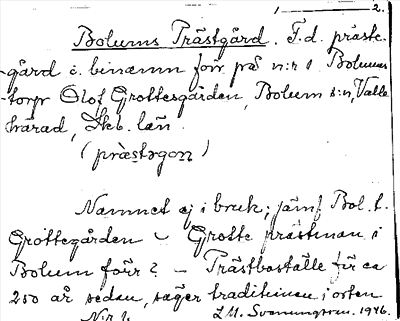 1 — 2.
Bolums Prästgård. F.d. präste-
gård o. binamn förr på n:r 1 Bolums-
torp Olof Grottesgården, Bolum s:n, Valle
härad, Skb. län.
(præstəgon)
Namnet ej i bruk; jämf Bol. t.
Grottegården – Grotte prästman i
Bolum förr? – Prästboställe för ca
250 år sedan, säger traditionen i orten
Nr 1. L.M. Svanungsson. 1946.